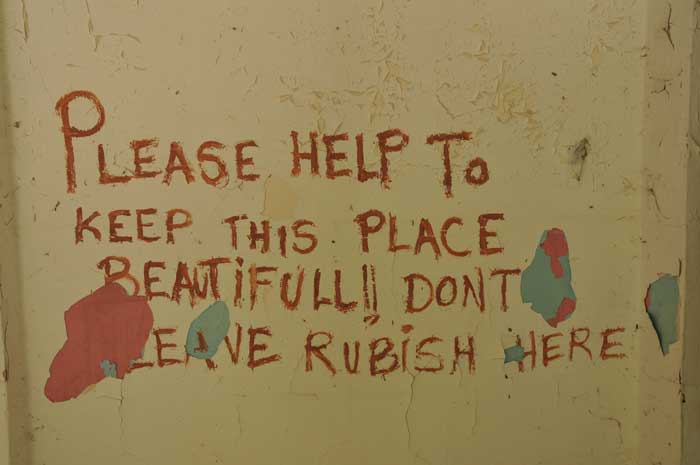 PLEASE HELP To
KEEP THIS PLACE
BEAUTiFULL!! DONT
LEAVE RUBiSH HERE